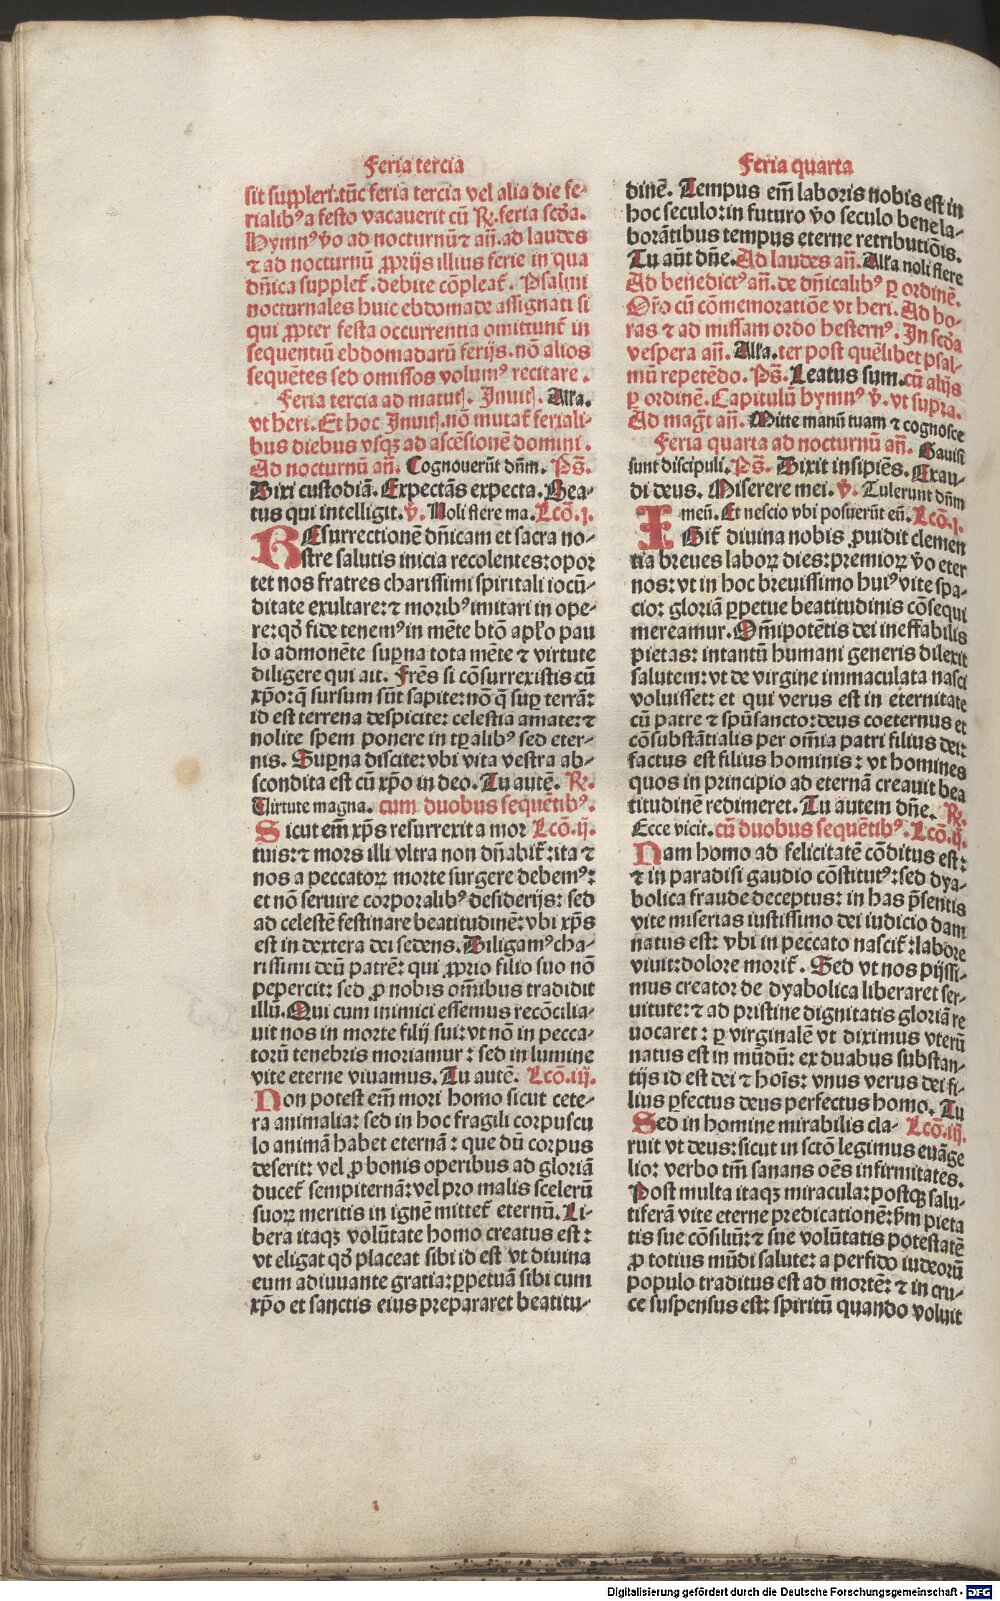 Feria tercia
sit suppleri. tūc feria tercia vel alia die fe-
rialibꝰ a festo vacauerit cū R̷. feria scd̄a.
Hymnꝰ v̄o ad nocturnū ⁊ an̄. ad laudes
⁊ ad nocturnū ꝓprijs illius ferie in qua
dn̄ica supplet̄. debite cōpleat̄. Psalmi
nocturnales huic ebdomade assignati si
qui ꝓpter festa occurrentia omittunt̄ in
sequentiū ebdomadarū ferijs. nō alios
sequētes sed omissos volumꝰ recitare.
Feria tercia ad matut̄. Inuit̄. Allꝰa.
vt heri. Et hoc Inuit̄. nō mutat̄ feriali-
bus diebus vsqꝫ ad ascēsionē domini.
Ad nocturnū an̄. Cognouerūt dn̄m. Ps̄.
Dixi custodiā. Expectās expecta. Bea-
tus qui intelligit. v̄. Noli flere ma. Lcō. j.
REsurrectionē dn̄icam et sacra no-
stre salutis inicia recolentes: opor
tet nos fratres charissimi spiritali iocū-
ditate exultare: ⁊ moribꝰ imitari in ope-
re: qd̄ fide tenemꝰ in mēte btō apl̄o pau
lo admonēte suꝑna tota mēte ⁊ virtute
diligere qui ait. Fr̄es si cōsurrexistis cū
xp̄o: q̄ sursum sūt sapite: nō q̄ suꝑ terrā:
id est terrena despicite: celestia amate: ⁊
nolite spem ponere in tꝑalibꝰ sed eter-
nis. Suꝑna discite: vbi vita vestra ab-
scondita est cū xp̄o in deo. Tu autē. R̷.
Virtute magna. cum duobus sequētibꝰ.
Sicut em̄ xp̄s resurrexit a mor Lcō. ij.
tuis: ⁊ mors illi vltra non dn̄abit̄: ita ⁊
nos a peccatoꝝ morte surgere debemꝰ:
et nō seruire corporalibꝰ desiderijs: sed
ad celestē festinare beatitudinē: vbi xp̄s
est in dextera dei sedens. Diligamꝰ cha-
rissimi deū patrē: qui ꝓprio filio suo nō
pepercit: sed ꝓ nobis om̄ibus tradidit
illū. Qui cum inimici essemus recōcilia-
uit nos in morte filij sui: vt nō in pecca-
torū tenebris moriamur: sed in lumine
vite eterne viuamus. Tu autē. Lcō. iij.
Non potest em̄ mori homo sicut cete-
ra animalia: sed in hoc fragili corpuscu
lo animā habet eternā: que dū corpus
deserit: vel ꝓ bonis operibus ad gloriā
ducet̄ sempiternā: vel pro malis scelerū
suoꝝ meritis in ignē mittet̄ eternū. Li-
bera itaqꝫ volūtate homo creatus est:
vt eligat qd̄ placeat sibi id est vt diuina
eum adiuuante gratia: ꝑpetuā sibi cum
xp̄o et sanctis eius prepararet beatitu-
Feria quarta
dinē. Tempus em̄ laboris nobis est in
hoc seculo: in futuro v̄o seculo bene la-
borātibus tempus eterne retributiōis.
Tu aut̄ dn̄e. Ad laudes an̄. Allꝰa noli flere
Ad benedictꝰ an̄. de dn̄icalibꝰ ꝑ ordinē.
Or̄o cū cōmemoratiōe vt heri. Ad ho-
ras ⁊ ad missam ordo hesternꝰ. In scd̄a
vespera an̄. Allꝰa. ter post quēlibet psal-
mū repetēdo. Ps̄. Letatus sum. cū alijs
ꝑ ordinē. Capitulū hymnꝰ v̄. vt supra.
Ad maḡt an̄. Mitte manū tuam ⁊ cognosce
Feria quarta ad nocturnū an̄. Gauisi
sunt discipuli. Ps̄. Dixit insipiēs. Exau-
di deus. Miserere mei. v̄. Tulerunt dn̄m
meū. Et nescio vbi posuerūt eū. Lcō. j.
IGit̄ diuina nobis ꝓuidit clemen
tia breues laboꝝ dies: premioꝝ v̄o eter
nos: vt in hoc breuissimo huiꝰ vite spa-
cio: gloriā ꝑpetue beatitudinis cōsequi
mereamur. Om̄ipotētis dei ineffabilis
pietas: intantū humani generis dilexit
salutem: vt de virgine immaculata nasci
voluisset: et qui verus est in eternitate
cū patre ⁊ spūsancto: deus coeternus et
cōsubstātialis per om̄ia patri filius dei:
factus est filius hominis: vt homines
quos in principio ad eternā creauit bea
titudinē redimeret. Tu autem dn̄e. R̷.
Ecce vicit. cū duobus sequētibꝰ. Lcō. ij.
Nam homo ad felicitatē cōditus est:
⁊ in paradisi gaudio cōstitutꝰ: sed dya-
bolica fraude deceptus: in has p̄sentis
vite miserias iustissimo dei iudicio dam
natus est: vbi in peccato nascit̄: labore
viuit: dolore morit̄. Sed vt nos pijssi-
mus creator de dyabolica liberaret ser-
uitute: ⁊ ad pristine dignitatis gloriā re
uocaret: ꝑ virginalē vt diximus vterū
natus est in mūdū: ex duabus substan-
tijs id est dei ⁊ hoīs: vnus verus dei fi-
lius ꝑfectus deus perfectus homo. Tu
Sed in homine mirabilis cla- Lcō. iij.
ruit vt deus: sicut in sctō legimus euāge
lio: verbo tm̄ sanans oēs infirmitates.
Post multa itaqꝫ miracula: postqꝫ salu-
tiferā vite eterne predicationē: s̄m pieta
tis sue cōsiliū: ⁊ sue volūtatis potestatē
ꝓ totius mūdi salute: a perfido iudeorū
populo traditus est ad mortē: ⁊ in cru-
ce suspensus est: spiritū quando voluit
Digitalisierung gefördert durch die Deutsche Forschungsgemeinschaft - DFG